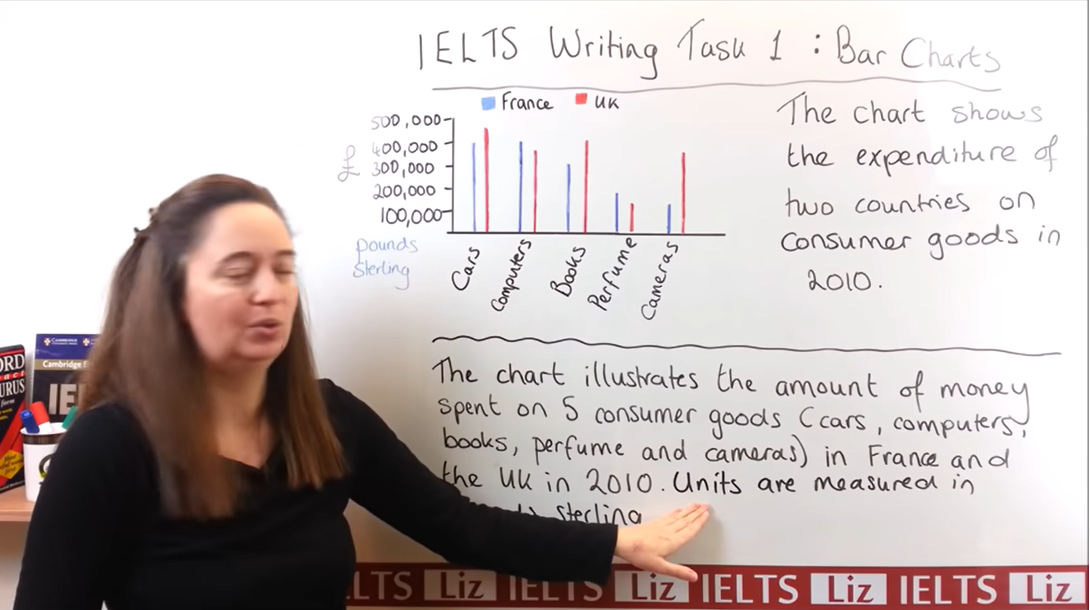 IELTS Writing Task 1 : Bar Charts
France UK
500,000
400,000
£
300,000
200,000
100,000
pounds
Sterling
Cars
Computers
Books
Perfume
Cameras
The chart shows
the expenditure of
two countries on
consumer goods in
2010.
The chart illustrates the amount of money
spent on 5 consumer goods (cars, computers,
books, perfume and cameras) in France and
the UK in 2010. Units are measured in
sterling
CAMBRIDGE
Cambridge
IELTS Liz IELTS Liz IELTS Liz IELTS Liz